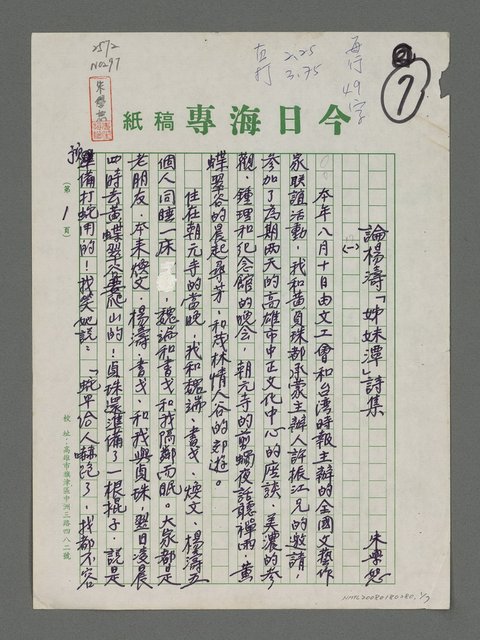 25/2
NO297
朱學恕
直打
2.25
3.75
每行49字
⑦
今日海專稿紙
論楊濤「姊妹潭」詩集
朱學恕
(一)
本年八月十日由文工會和台湾時報主辦的全國文藝作
家聯誼活動,我和黃貞珠都承蒙主辦人許振江兄的邀請,
參加了為期两天的高雄市中正文化中心的座談.美濃的參
觀.鍾理和纪念館的晚会.朝元寺的剪蠋夜話聽禪雨.黃
蝶翠谷的晨起尋芳.和茂林情人谷的郊遊。
住在朝元寺的當晚,我和魏端.書戈.煥文.楊濤五
個人同睡一床,魏端和書戈和我隔鄰而眠。大家都是
老朋友.本来煥文.楊濤.書戈.和我與貞珠,翌日凌晨
四時去黃蝶翠谷要爬山的!貞珠還準備了一根棍子.說是
準備打蛇用的!我笑她說:「蛇早给人嚇跑了,找都不容
(第 1 頁)
校址:高雄市旗津區中洲三路四八二號
NMTL20080180280, 1/7